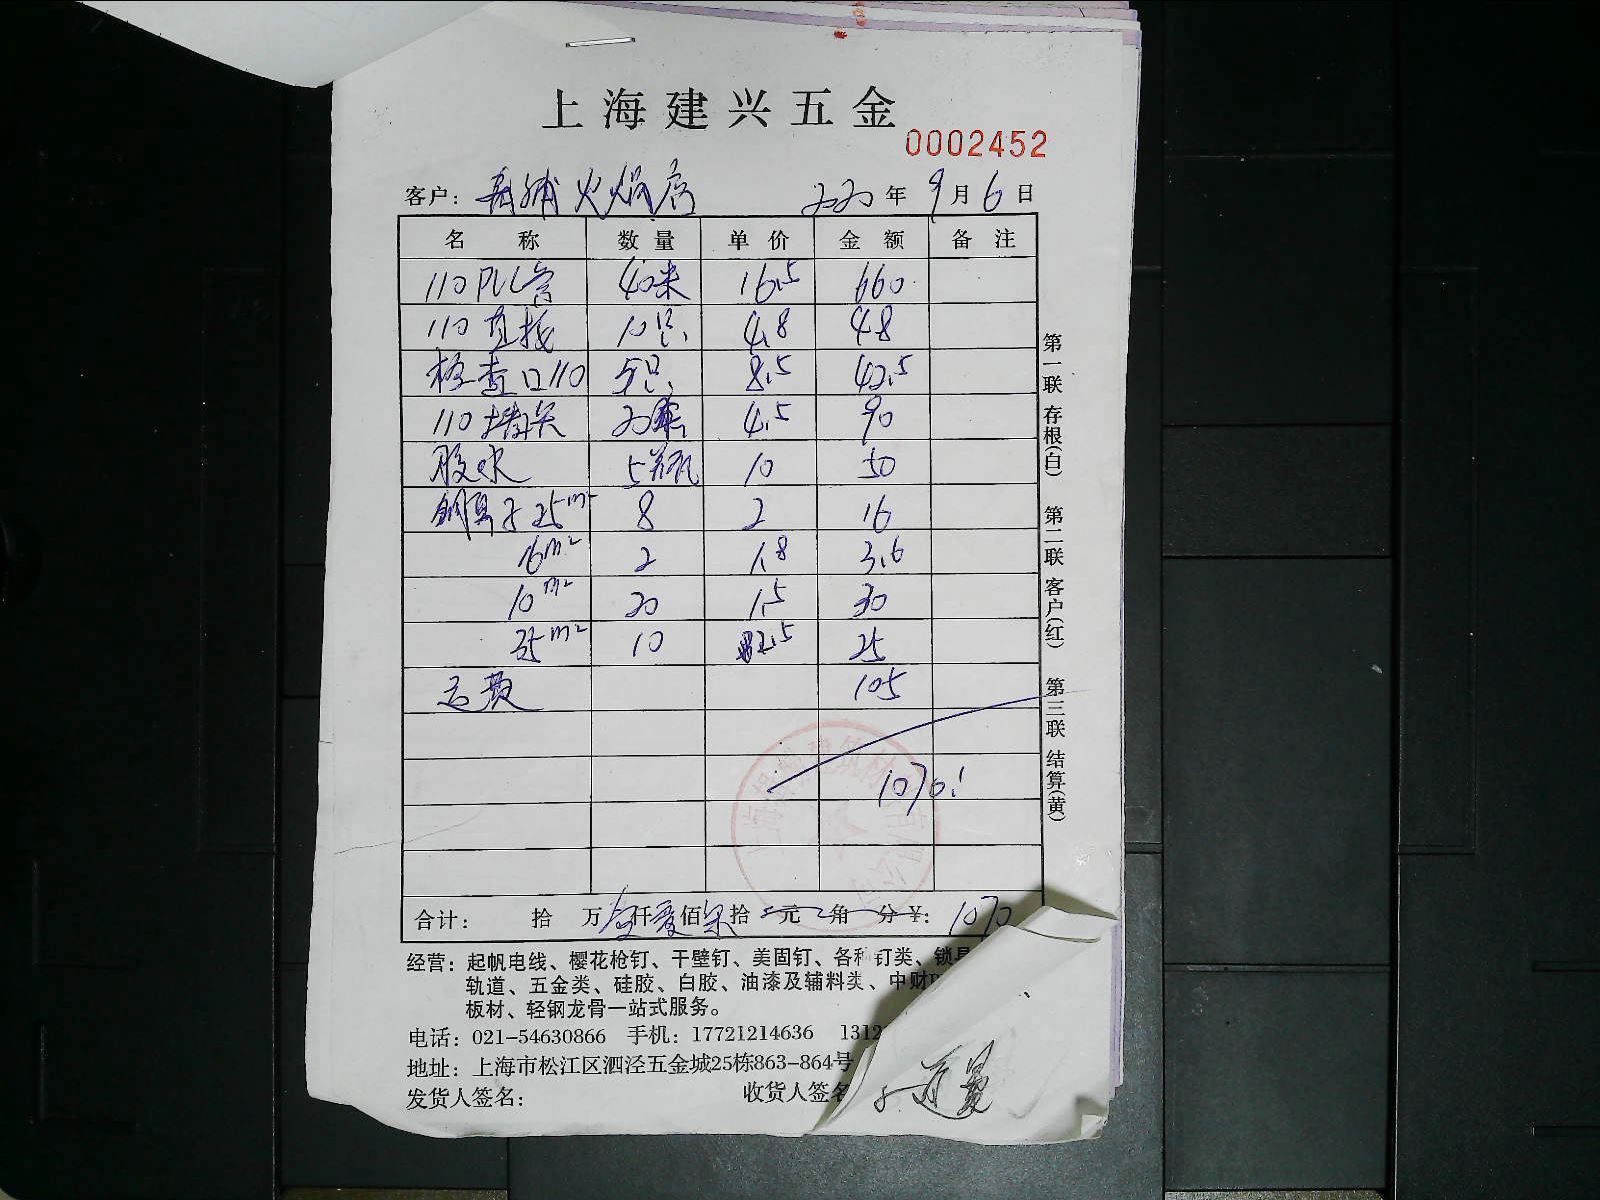 上海建兴五金
0002452
客户： 火焗店 2020 年 9 月 6 日
名 称 数 量 单 价 金 额 备 注
110 PVC管 40米 16.5 660
110 直接 10只 4.8 48
检查口110 5只 8.5 42.5
110 4.5 90
胶水 5瓶 10 50
铜鼻子 25m² 8 2 16
16m² 2 1.8 3.6
10m² 20 1.5 30
35m² 10 2.5 25
运费 105
1070!
合计： 拾 万 仟 佰 拾 元 角 分 ¥: 1070
第一联 存根(白) 第二联 客户(红) 第三联 结算(黄)
经营：起帆电线、樱花枪钉、干壁钉、美固钉、各种钉类、锁具
轨道、五金类、硅胶、白胶、油漆及辅料类、中财
板材、轻钢龙骨一站式服务。
电话：021-54630866 手机：17721214636 1312
地址：上海市松江区泗泾五金城25栋863-864号
发货人签名： 收货人签名